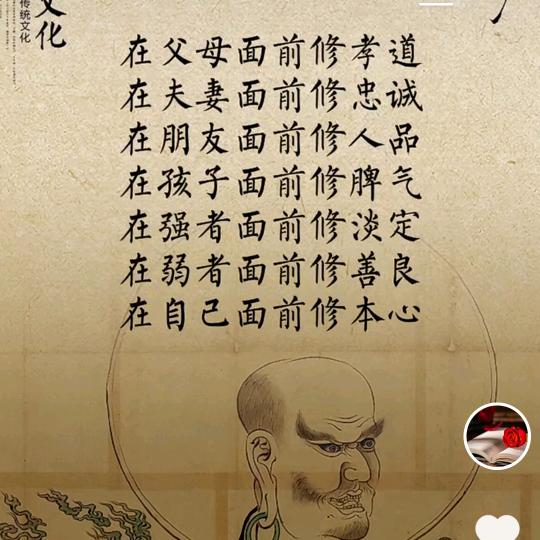 文化
传统文化
在父母面前修孝道
在夫妻面前修忠诚
在朋友面前修人品
在孩子面前修脾气
在强者面前修淡定
在弱者面前修善良
在自己面前修本心